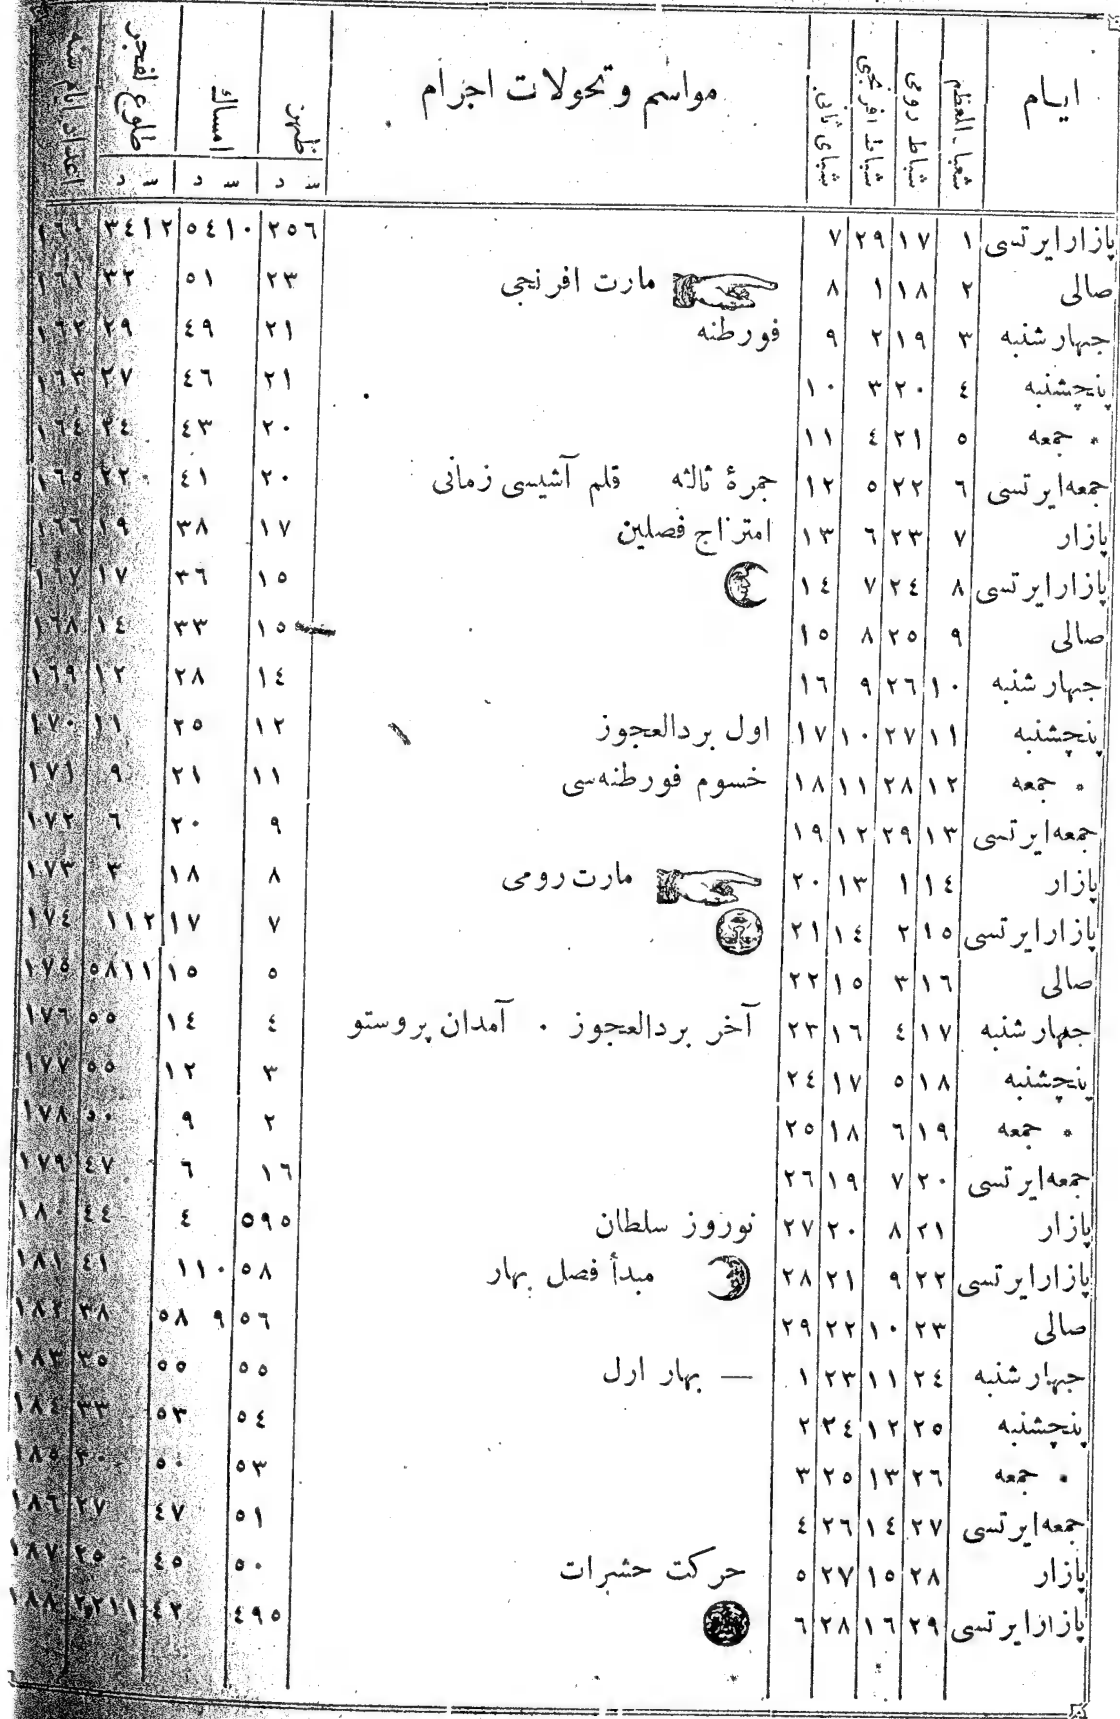 ایام شعبا_العظم شباط رومی شباط افرنجی شتای ثانی مواسم و تحولات اجرام ظهر امساك طلوع لفجر اعداد ایام سنه
س د س د س د
پازارایرتسی ١ ١٧ ٢٩ ٧ ٢٥٦ ٥٤١٠ ٣٤١٢ ١٦٠
صالی ٢ ١٨ ١ ٨ مارت افرنجی ٢٣ ٥١ ٣٢ ١٦١
چهارشنبه ٣ ١٩ ٢ ٩ فورطنه ٢١ ٤٩ ٢٩ ١٦٢
پنچشنبه ٤ ٢٠ ٣ ١٠ ٢١ ٤٦ ٢٧ ١٦٣
* جمعه ٥ ٢١ ٤ ١١ ٢٠ ٤٣ ٢٤ ١٦٤
جمعه‌ایرتسی ٦ ٢٢ ٥ ١٢ جمرۀ ثالثه قلم آشیسی زمانی ٢٠ ٤١ ٢٢ ١٦٥
پازار ٧ ٢٣ ٦ ١٣ امتزاج فصلین ١٧ ٣٨ ١٩ ١٦٦
پازارایرتسی ٨ ٢٤ ٧ ١٤ ١٥ ٣٦ ١٧ ١٦٧
صالی ٩ ٢٥ ٨ ١٥ ١٥ ٣٣ ١٤ ١٦٨
چهارشنبه ١٠ ٢٦ ٩ ١٦ ١٤ ٢٨ ١٢ ١٦٩
پنچشنبه ١١ ٢٧ ١٠ ١٧ اول بردالعجوز ١٢ ٢٥ ١١ ١٧٠
* جمعه ١٢ ٢٨ ١١ ١٨ خسوم فورطنه‌سی ١١ ٢١ ٩ ١٧١
جمعه‌ایرتسی ١٣ ٢٩ ١٢ ١٩ ٩ ٢٠ ٦ ١٧٢
پازار ١٤ ١ ١٣ ٢٠ مارت رومی ٨ ١٨ ٣ ١٧٣
پازارایرتسی ١٥ ٢ ١٤ ٢١ ٧ ١٧ ١١٢ ١٧٤
صالی ١٦ ٣ ١٥ ٢٢ ٥ ١٥ ٥٨١١ ١٧٥
چهارشنبه ١٧ ٤ ١٦ ٢٣ آخر بردالعجوز ٠ آمدان پروستو ٤ ١٤ ٥٥ ١٧٦
پنچشنبه ١٨ ٥ ١٧ ٢٤ ٣ ١٢ ٥٥ ١٧٧
* جمعه ١٩ ٦ ١٨ ٢٥ ٢ ٩ ٥٠ ١٧٨
جمعه‌ایرتسی ٢٠ ٧ ١٩ ٢٦ ١٦ ٦ ٤٧ ١٧٩
پازار ٢١ ٨ ٢٠ ٢٧ نوروز سلطان ٥٩٥ ٤ ٤٤ ١٨٠
پازارایرتسی ٢٢ ٩ ٢١ ٢٨ مبدأ فصل بهار ٥٨ ١١٠ ٤١ ١٨١
صالی ٢٣ ١٠ ٢٢ ٢٩ ٥٦ ٥٨ ٩ ٣٨ ١٨٢
چهارشنبه ٢٤ ١١ ٢٣ ١ — بهار ارل ٥٥ ٥٥ ٣٥ ١٨٣
پنچشنبه ٢٥ ١٢ ٢٤ ٢ ٥٤ ٥٣ ٣٣ ١٨٤
* جمعه ٢٦ ١٣ ٢٥ ٣ ٥٣ ٥٠ ٣٠ ١٨٥
جمعه‌ایرتسی ٢٧ ١٤ ٢٦ ٤ ٥١ ٤٧ ٢٧ ١٨٦
پازار ٢٨ ١٥ ٢٧ ٥ حرکت حشرات ٥٠ ٤٥ ٢٥ ١٨٧
پازارایرتسی ٢٩ ١٦ ٢٨ ٦ ٤٩٥ ٤٢ ٢٢١١ ١٨٨